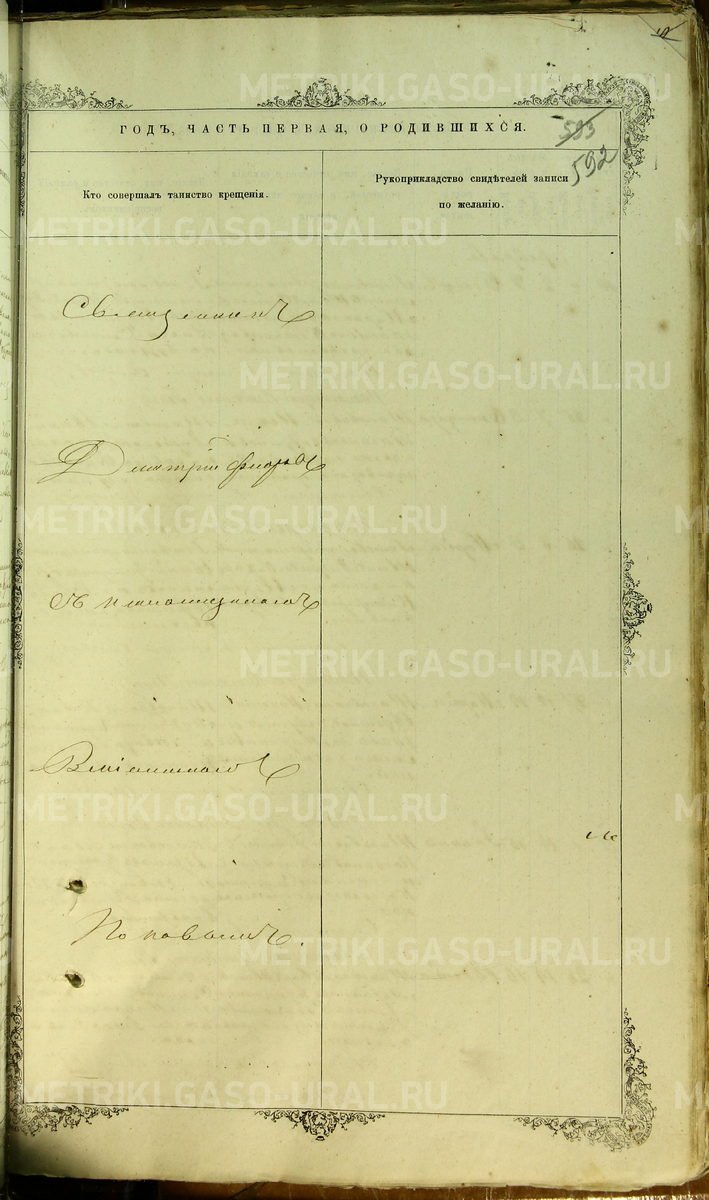 METRIKI.GASO-URAL.RU
ГОДЪ, ЧАСТЬ ПЕРВАЯ, О РОДИВШИХСЯ.
593
592
Кто совершалъ таинство крещенія.
Рукоприкладство свидѣтелей записи
по желанію.
METRIKI.GASO-URAL.RU
Священникъ
METRIKI.GASO-URAL.RU
Дмитрій
METRIKI.GASO-URAL.RU
съ
METRIKI.GASO-URAL.RU
METRIKI.GASO-URAL.RU
Поповымъ.
METRIKI.GASO-URAL.RU
METRIKI.GASO-URAL.RU